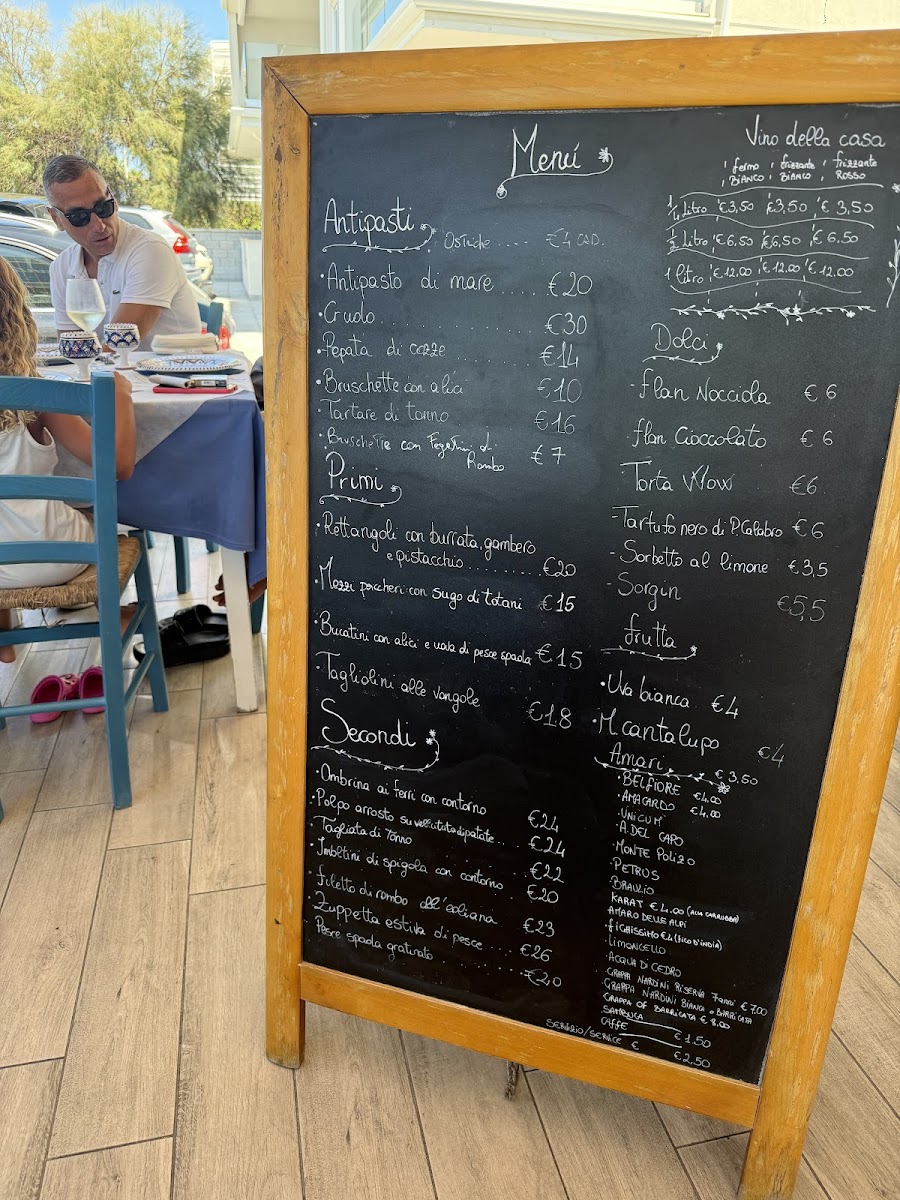 Menú
Antipasti
Ostriche .... €4 CAD.
·Antipasto di mare ..... €20
·Crudo ........ €30
·Pepata di cozze ..... €14
·Bruschette con alici €10
·Tartare di tonno €16
·Bruschette con Fegatini di
Rombo €7
Primi
·Rettangoli con burrata, gambero
e pistacchio ........ €20
·Mezzi paccheri con sugo di totani €15
·Bucatini con alici e uova di pesce spada €15
·Tagliolini alle vongole €18
Secondi
·Ombrina ai ferri con contorno €24
·Polpo arrosto su vellutata di patate .. €24
·Tagliata di Tonno €22
·Involtini di spigola con contorno €20
·Filetto di rombo all'eoliana €23
·Zuppetta estiva di pesce ... €26
·Pesce spada gratinato €20
Vino della casa
fermo frizzante frizzante
BIANCO BIANCO ROSSO
1/4 Litro €3,50 €3,50 €3,50
1/2 Litro €6,50 €6,50 €6.50
1 litro €12.00 €12.00 €12.00
Dolci
·flan Nocciola €6
·flan Cioccolato €6
·Torta Wow €6
-Tartufo nero di P. Calabro €6
-Sorbetto al limone €3,5
-Sorgin €5,5
frutta
·Uva bianca €4
·M. cantalupo €4
Amari €3,50
·BELFIORE €4.00
·AMACARDO €4.00
·UNICUM
·A. DEL CAPO
·MONTE POLIZO
·PETRUS
·BRAULIO
KARAT €4.00 (ALLA CARRUBBA)
AMARO DELLE ALPI
·FICHISSIMO €4 (FICO D'INDIA)
·LIMONCELLO
·ACQUA DI CEDRO
·GRAPPA NARDINI RISERVA 7 anni €7.00
·GRAPPA NARDINI BIANCA o BARRICATA
GRAPPA OF BARRICATA €8.00
SAMBUCA
CAFFE €1.50
SERVIZIO/SERVICE € €2.50